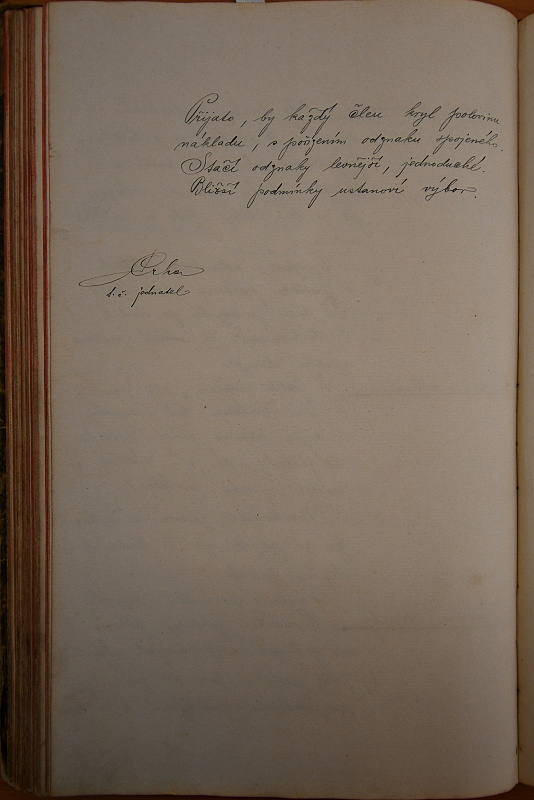 Přijato, by každý člen kryl polovinu
nákladu, s pořízením odznaku spojeného.
Stačí odznaky levnější, jednoduché.
Bližší podmínky ustanoví výbor.
t. č. jednatel